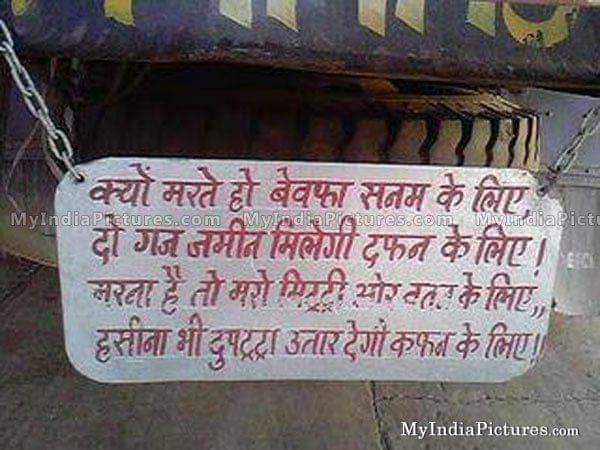 क्यों मरते हो बेवफा सनम के लिए,
MyIndiaPictures.com MyIndiaPictures.com MyIndiaPictures.com
दो गज जमीन मिलेगी दफन के लिए!
मरना है तो मरो मिट्टी ओर वतन के लिए,,
हसीना भी दुपट्टा उतार देगी कफन के लिए!!
MyIndiaPictures.com